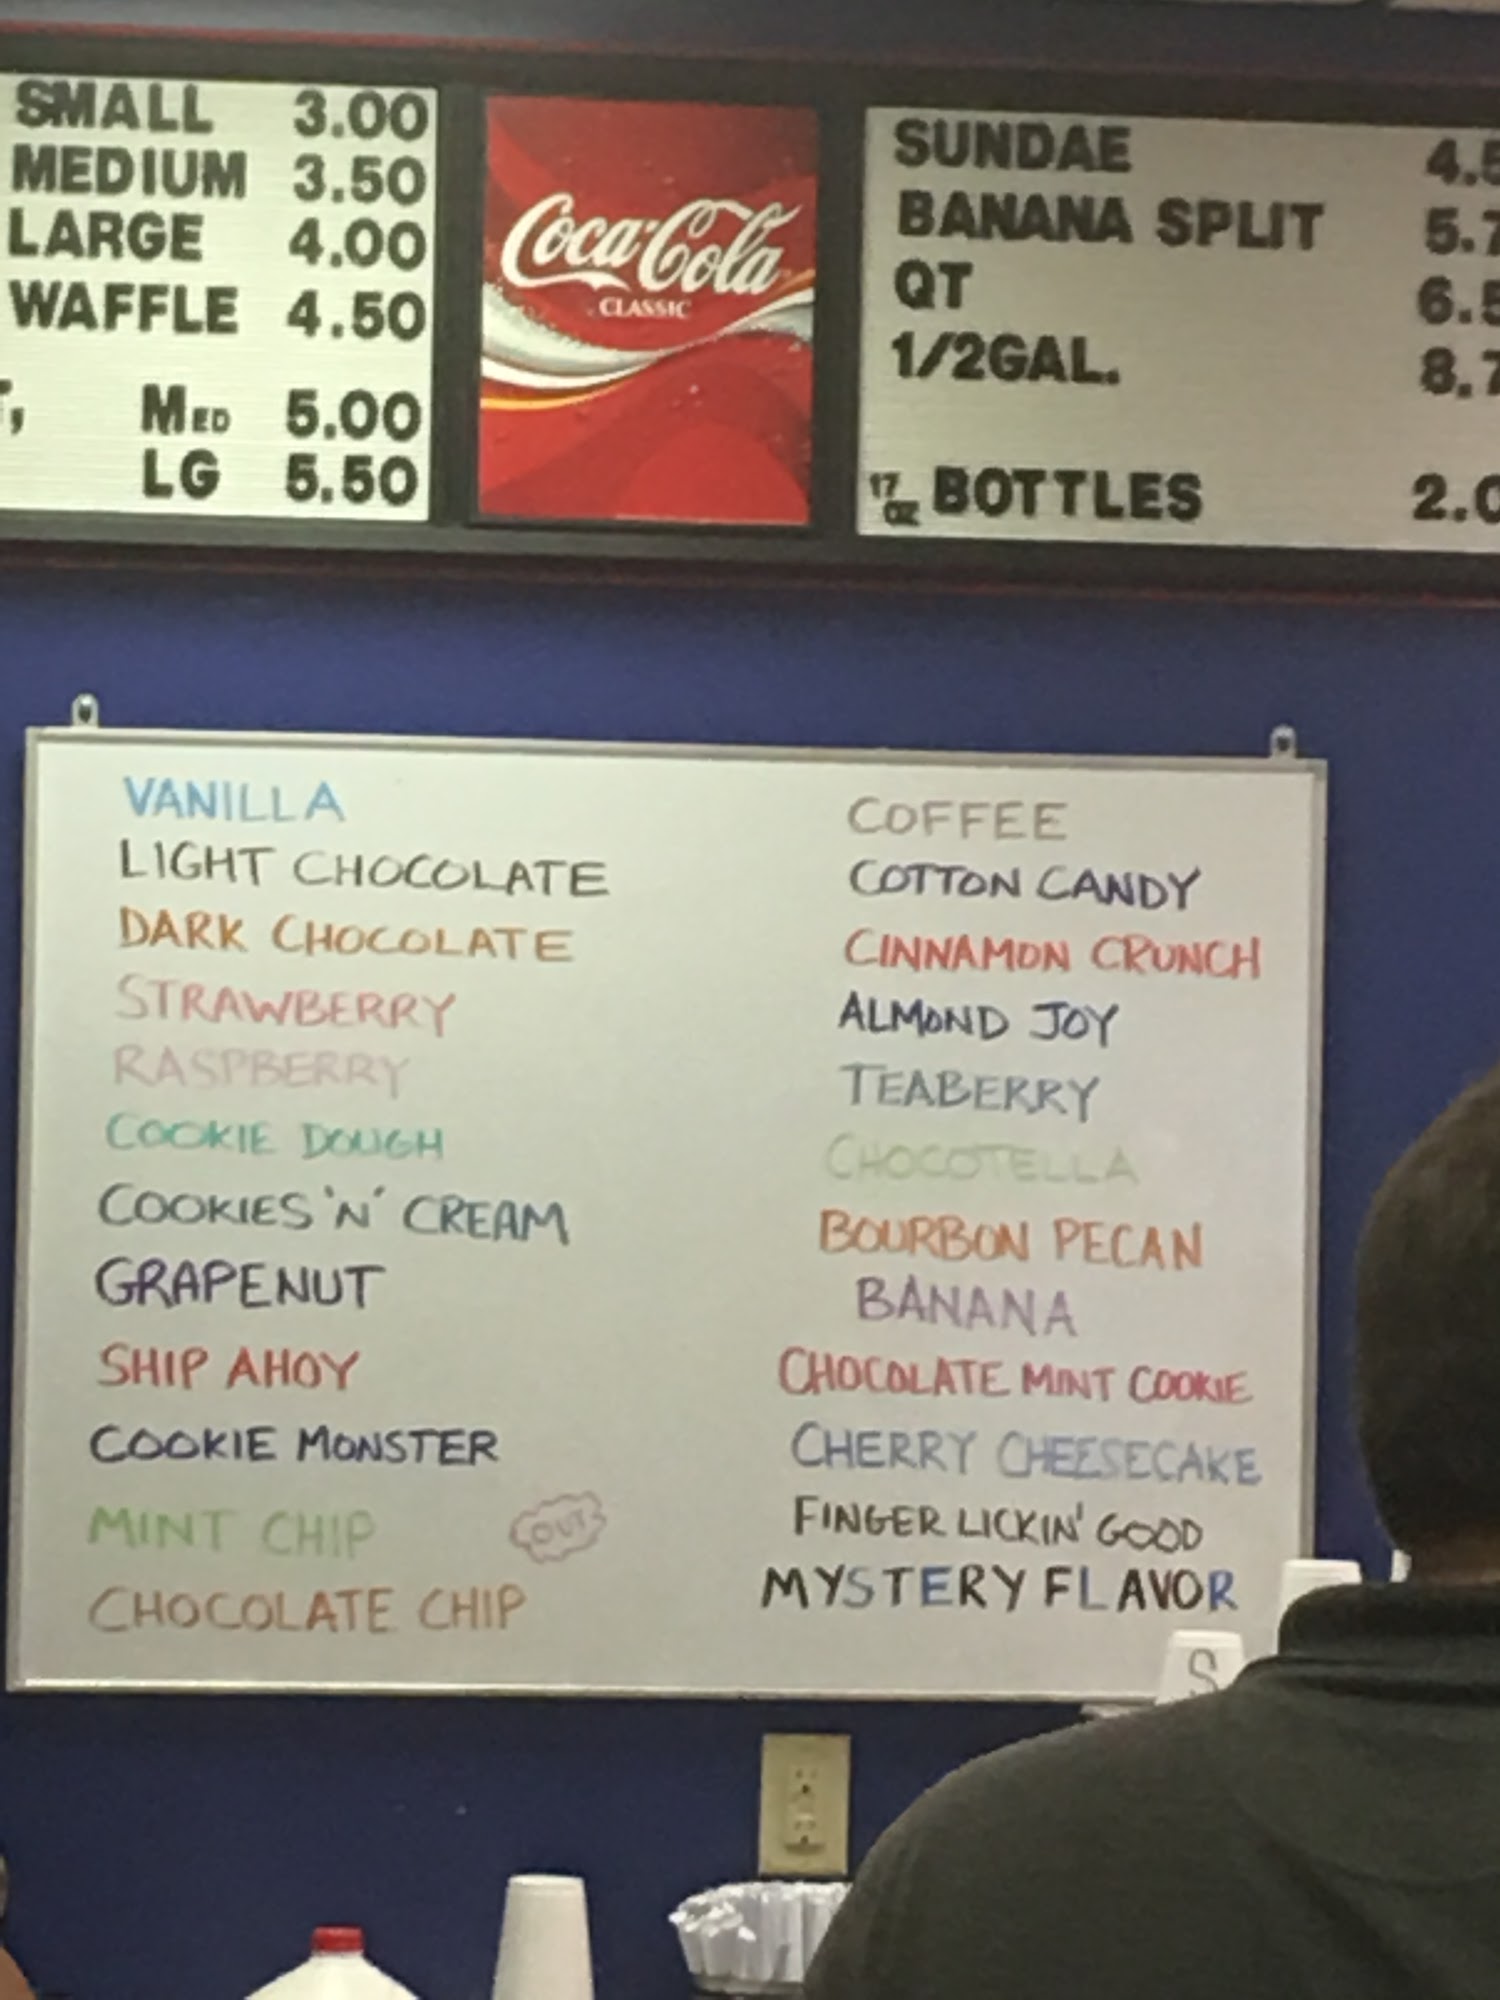 SMALL 3.00
MEDIUM 3.50
LARGE 4.00
WAFFLE 4.50
MED 5.00
LG 5.50
Coca-Cola
CLASSIC
SUNDAE 4.5
BANANA SPLIT 5.7
QT 6.5
1/2GAL. 8.7
17 OZ BOTTLES 2.0
VANILLA
LIGHT CHOCOLATE
DARK CHOCOLATE
STRAWBERRY
RASPBERRY
COOKIE DOUGH
COOKIES 'N' CREAM
GRAPENUT
SHIP AHOY
COOKIE MONSTER
MINT CHIP OUT
CHOCOLATE CHIP
COFFEE
COTTON CANDY
CINNAMON CRUNCH
ALMOND JOY
TEABERRY
CHOCOTELLA
BOURBON PECAN
BANANA
CHOCOLATE MINT COOKIE
CHERRY CHEESECAKE
FINGER LICKIN' GOOD
MYSTERY FLAVOR
S